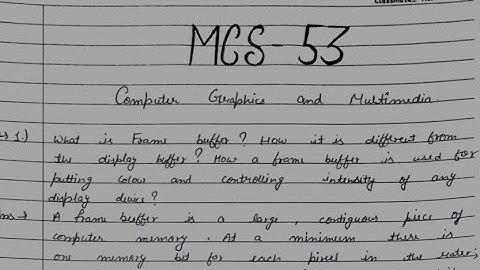 MCS-53
Computer Graphics and Multimedia.
1.) What is Frame buffer? How it is different from
the display buffer? How a frame buffer is used for
putting colour and controlling intensity of any
display device?
Ans → A frame buffer is a large, contiguous piece of
computer memory. At a minimum there is
one memory bit for each pixel in the